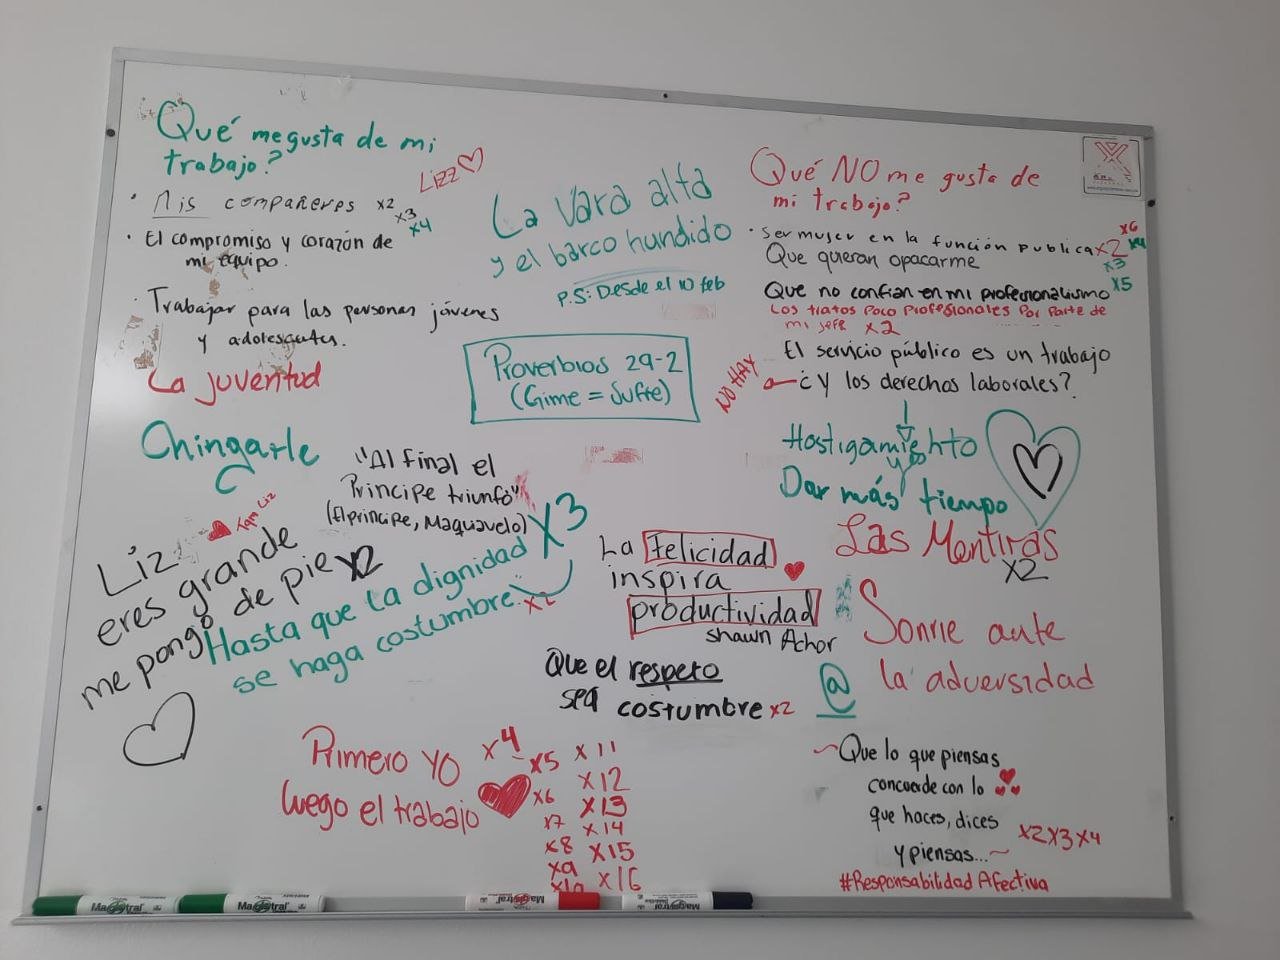 Qué me gusta de mi
trabajo?
Lizz
· Mis compañeres x2
x3
x4
· El compromiso y corazón de
mi equipo.
· Trabajar para las personas jóvenes
y adolescentes.
La juventud
Chingarle
"Al final el
Principe triunfó"
(El principe, Maquiavelo)
Tqm Liz
Liz
eres grande
me pongo de pie x2
Hasta que la dignidad x3
se haga costumbre. x2
La Vara alta
y el barco hundido
P.S: Desde el 10 feb
Proverbios 29-2
(Gime = Sufre)
La felicidad
inspira
productividad
Shawn Achor
Que el respeto
sea costumbre x2
Primero yo
luego el trabajo
x4
x5
x6
x7
x8
x9
x10
x11
x12
x13
x14
x15
x16
Qué NO me gusta de
mi trabajo?
· Ser mujer en la función publica x2
x6
x4
x3
x5
Que quieran opacarme
Que no confian en mi profesionalismo
Los tratos poco profesionales por parte de
mi jefe x2
El servicio público es un trabajo
NO HAY
¿Y los derechos laborales?
Hostigamiento
y
Dar más tiempo
Las Mentiras
x2
Sonrie ante
la adversidad
@
~Que lo que piensas
concuerde con lo
que haces, dices
y piensas...~
x2 x3 x4
#ResponsabilidadAfectiva
Magistral
Magistral
Magistral
Magistral